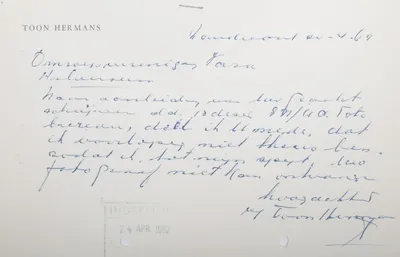 TOON HERMANS
Zandvoort 20-4-64
Omroepvereniging Vara
Hilversum
Naar aanleiding van Uw geacht
schrijven dd. 10 dezer
bureau, deel ik U mede, dat
ik voorlopig niet thuis ben
zodat ik, het neen spijt, Uw
fotograaf niet kan ontvangen
hoogachtend
Toon Hermans
24 APR. 19